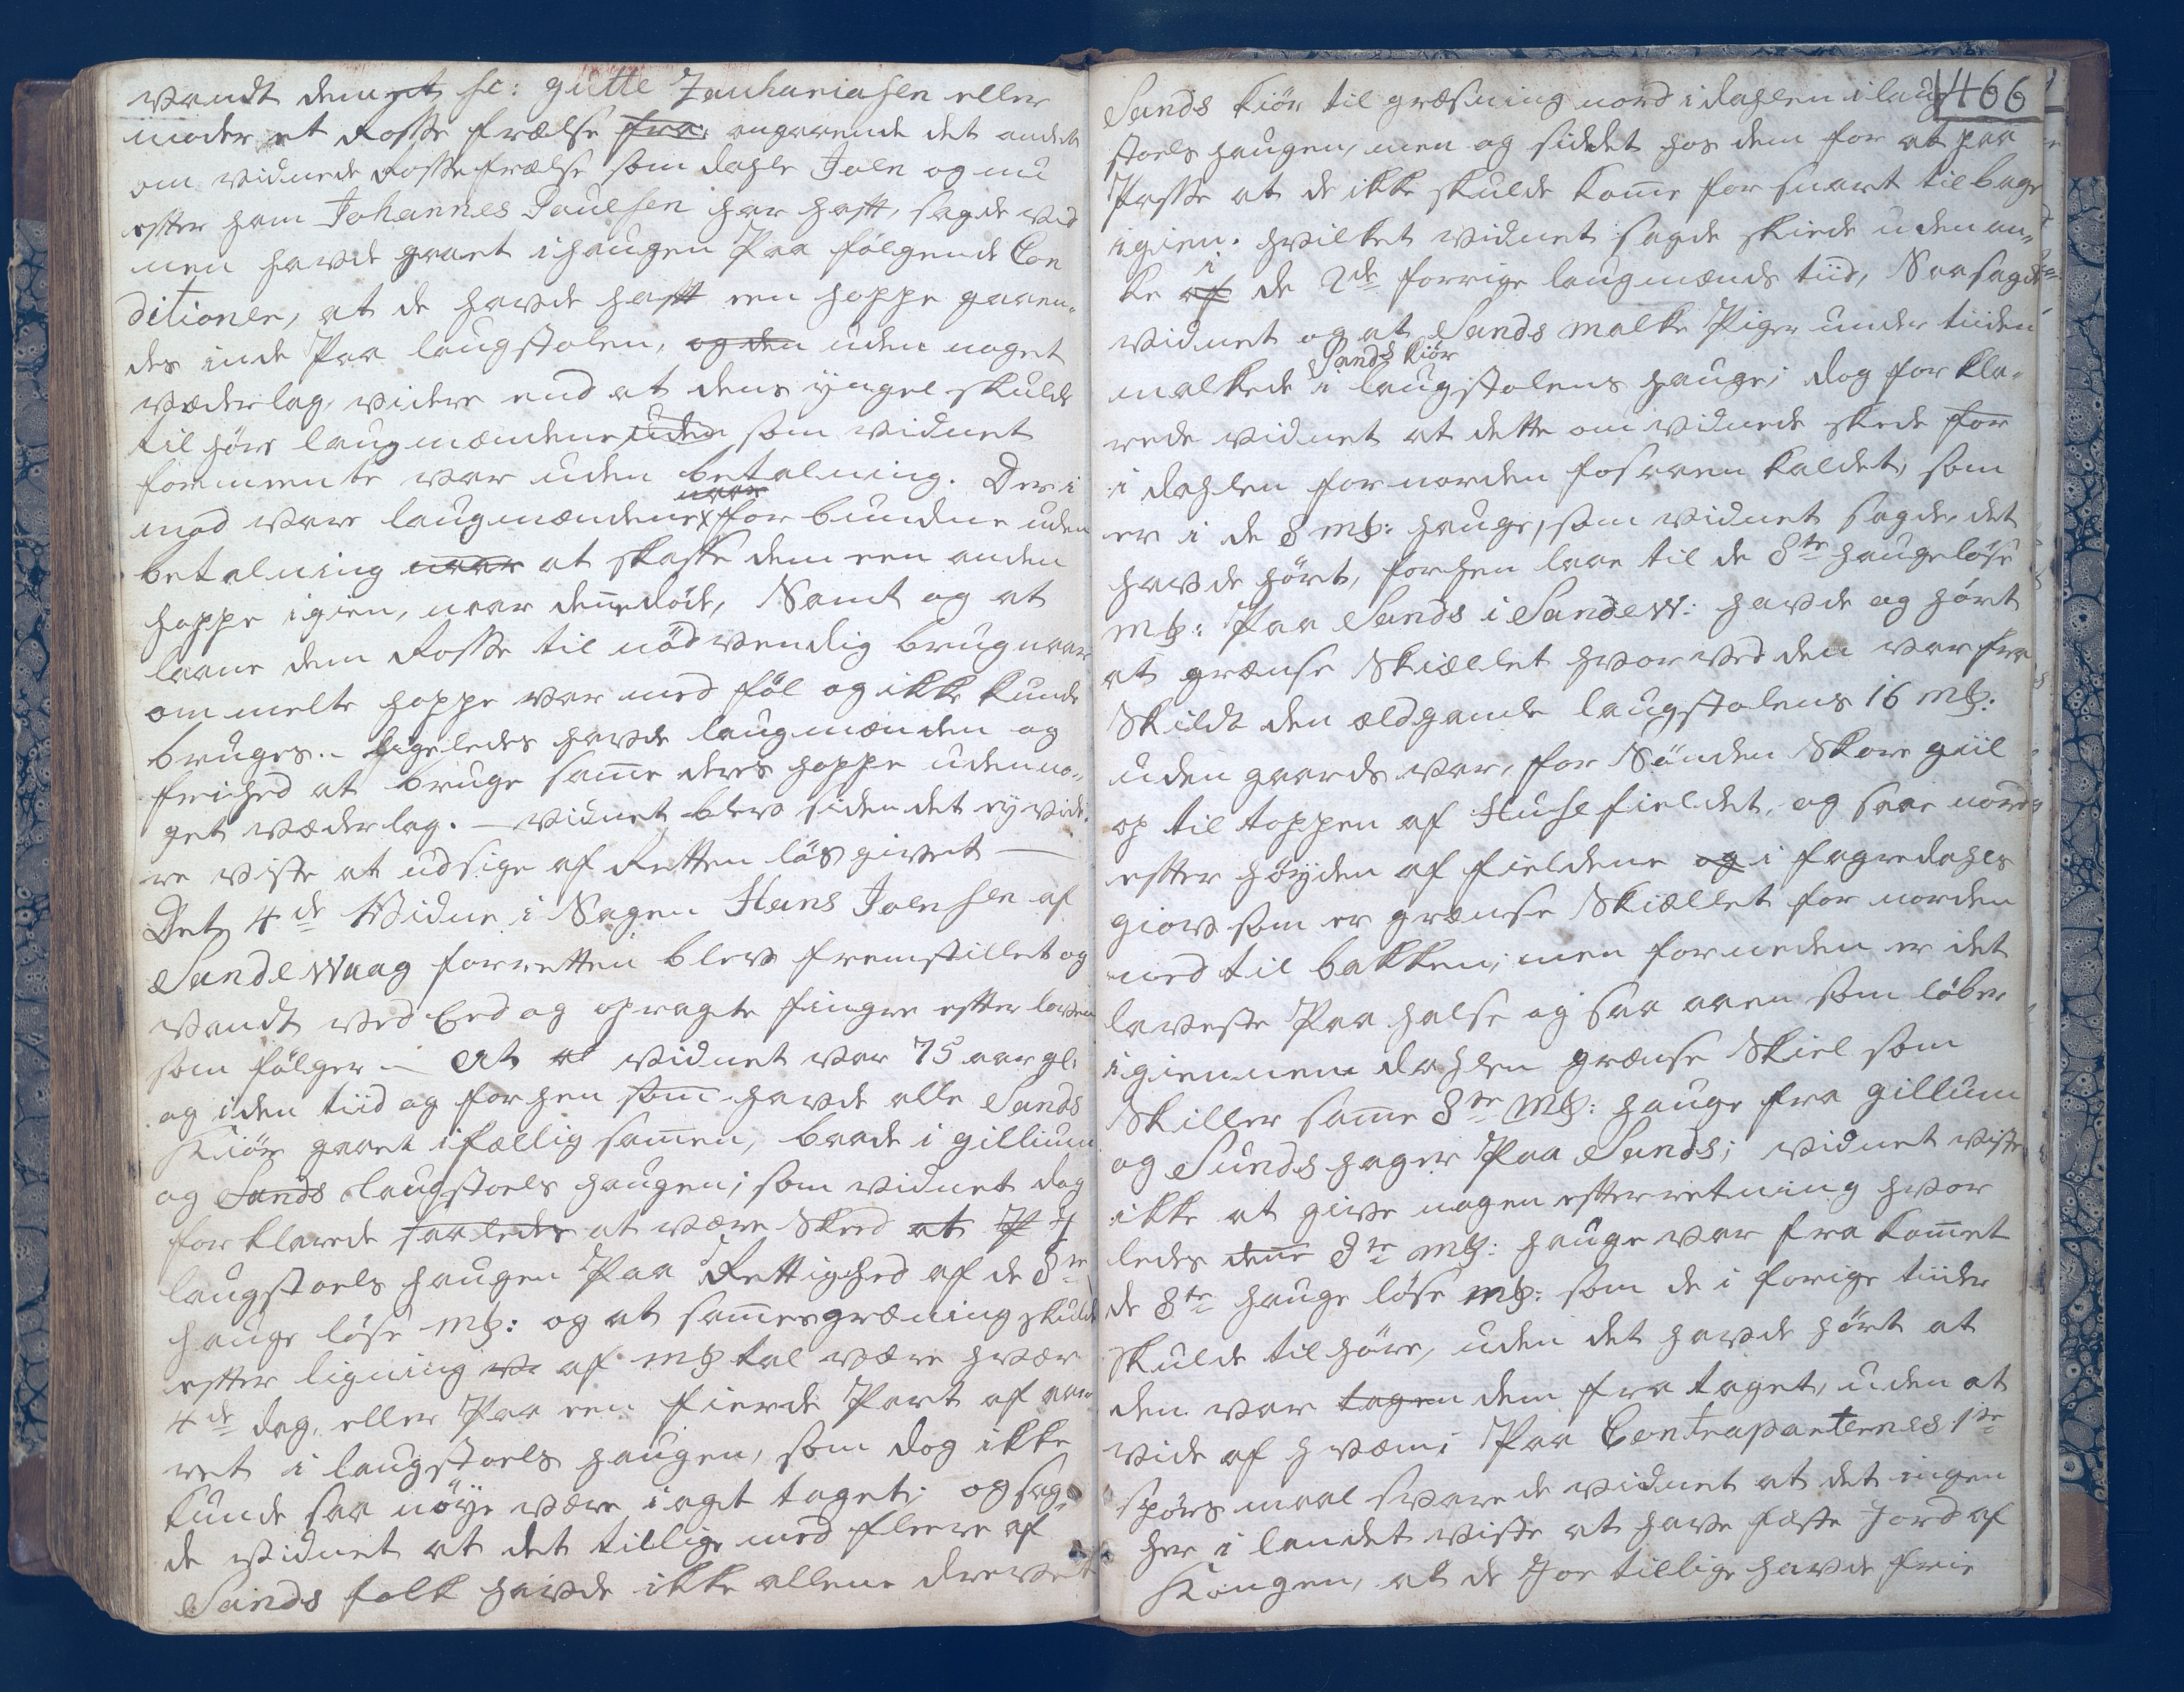 vandt dem et sc: gutte Zachariasen eller
moder et Rosse frælse fra, angaaende det andet
om vidnede Rossefrælse som dahle Joen og nu
efter ham Johannes Poulsen har hafft, sagde vid
nen havde gaaet i haugen Paa følgende Con
ditioner, at de havde hafft een hoppe gaaen„
des inde Paa laugstolen, og den uden noget
væderlag, videre end at dens yngel skulde
til høre laugmændene uden, som vidnet
formeente var uden betalning. Der i
naar
mod vare laugmændene x for bundne uden
betalning naar at skaffe dem een anden
hoppe igien, naar denne døde, Samt og at
laane dem Rosse til nødvendig brug naar
ommelte hoppe var med føl og ikke kunde
bruges. – ligeledes havde laugmanden og
friehed at bruge samme deres hoppe uden no„
get væderlag. – vidnet blev siden det ey vide„
re viste at udsige af Retten løs givet —
Det 4de Vidne i Sagen Hans Joensen af
Sandevaag for retten blev fremstillet og
vandt ved Eed og opragte fingre efter loven
som følger – At at vidnet var 75 aar gl:
og i den tiid og forhen som havde alle Sands
Kiør gaaet i fællig samen, baade i gillium
og Sands laugstoels haugen; som vidnet dog
forklarede saaledes at være Skeed at P J
laugstoels haugen Paa Rettighed af de 8te
hauge løse mk: og at samme græsning skulde
efter ligning va af mk tal være hvær
4de dag, eller Paa een fierde Part af aa„
ret i laugstoels haugen, som dog ikke
kunde saa nøye være i agt taget; og sag„
de vidnet at det tillige med fleere af
Sands folk havde ikke allene drevet
466
Sands kiør til græsning nord i dahlen i laug
stoels haugen, men og siddet hos dem for at paa
Passe at de ikke skulde komme for snart tilbage
igien. hvilket vidnet sagde skiede uden an„
i
ke af de 2de forrige laugmænds tiid, Saa sagde
vidnet og at Sands malke Piger under tiiden
Sands kiør
malkede i laugstolens hauge; dog forkla„
rede vidnet at dette om vidnede skede for
i dahlen for norden fossaaen kaldet, som
er i de 8 mk: hauge, som vidnet sagde, det
havde hørt, forhen laae til de 8te haugeløse
mk: Paa Sands i Sandev: havde og hørt
at grænse Skiællet hvorved den var fra
Skildt den ældgamle laugstolens 16 mk:
uden gaards var, for Sønden Skore giil
op til toppen af Husl fieldet, og saa nord
efter høyden af fieldene og i fagredahls
giov som er grænse Skiællet for norden
ned til bakken; men forneden er det
laveste Paa halse og saa aaen som løber
igiennem dahlen grænse Skiel som
Skiller samme 8te mk: hauge fra gillum
og Sunds hager Paa Sands; vidnet viste
ikke at give nogen efterretning hvor
ledes denne 8te mk: hauge var fra kommet
de 8te hauge løse mk: som de i forige tiider
skulde tilhøre, uden det havde hørt at
den var tagen dem fra taget, uden at
vide af hvæm; Paa Contrapartenes 1te
spørs maal svarede vidnet at det ingen
her i landet viste at have fæste Jord af
Kongen, at de Jo tillige havde frie